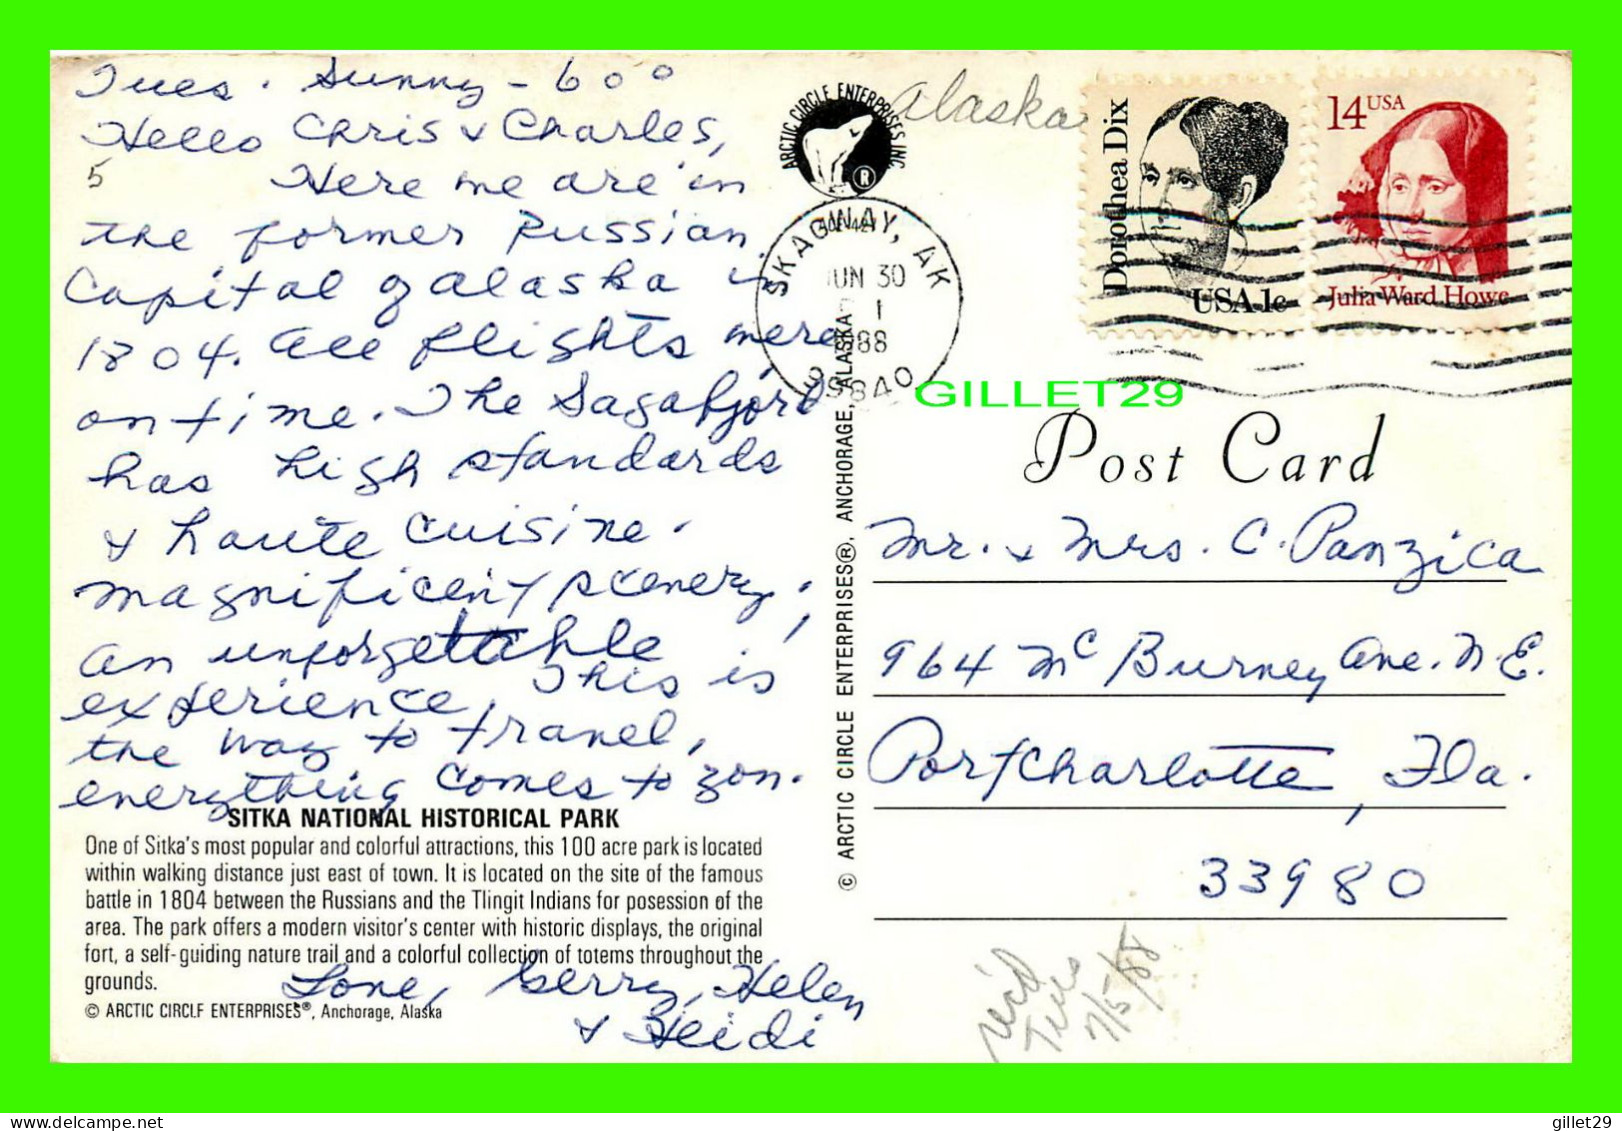 Tues. Sunny - 60°
Hello Chris & Charles,
5
Here we are in
the former Russian
Capital of Alaska in
1804. All flights were
on time. The Sagafjord
has high standards
& haute cuisine.
Magnificent scenery,
an unforgettable
experience, This is
the way to travel,
everything comes to you.
SITKA NATIONAL HISTORICAL PARK
One of Sitka's most popular and colorful attractions, this 100 acre park is located
within walking distance just east of town. It is located on the site of the famous
battle in 1804 between the Russians and the Tlingit Indians for posession of the
area. The park offers a modern visitor's center with historic displays, the original
fort, a self-guiding nature trail and a colorful collection of totems throughout the
grounds.
© ARCTIC CIRCLE ENTERPRISES®, Anchorage, Alaska
Love, Gerry, Helen
& Heidi
ARCTIC CIRCLE ENTERPRISES INC.
®
© ARCTIC CIRCLE ENTERPRISES®, ANCHORAGE, ALASKA
Alaska
SKAGWAY, AK
JUN 30
1988
99840
Dorothea Dix
USA 1c
14 USA
Julia Ward Howe
GILLET29
Post Card
Mr. & Mrs. C. Panzica
964 McBurney Ave. N.E.
Port Charlotte, Fla.
33980
rec'd
Tues
7/5/88
© gillet29